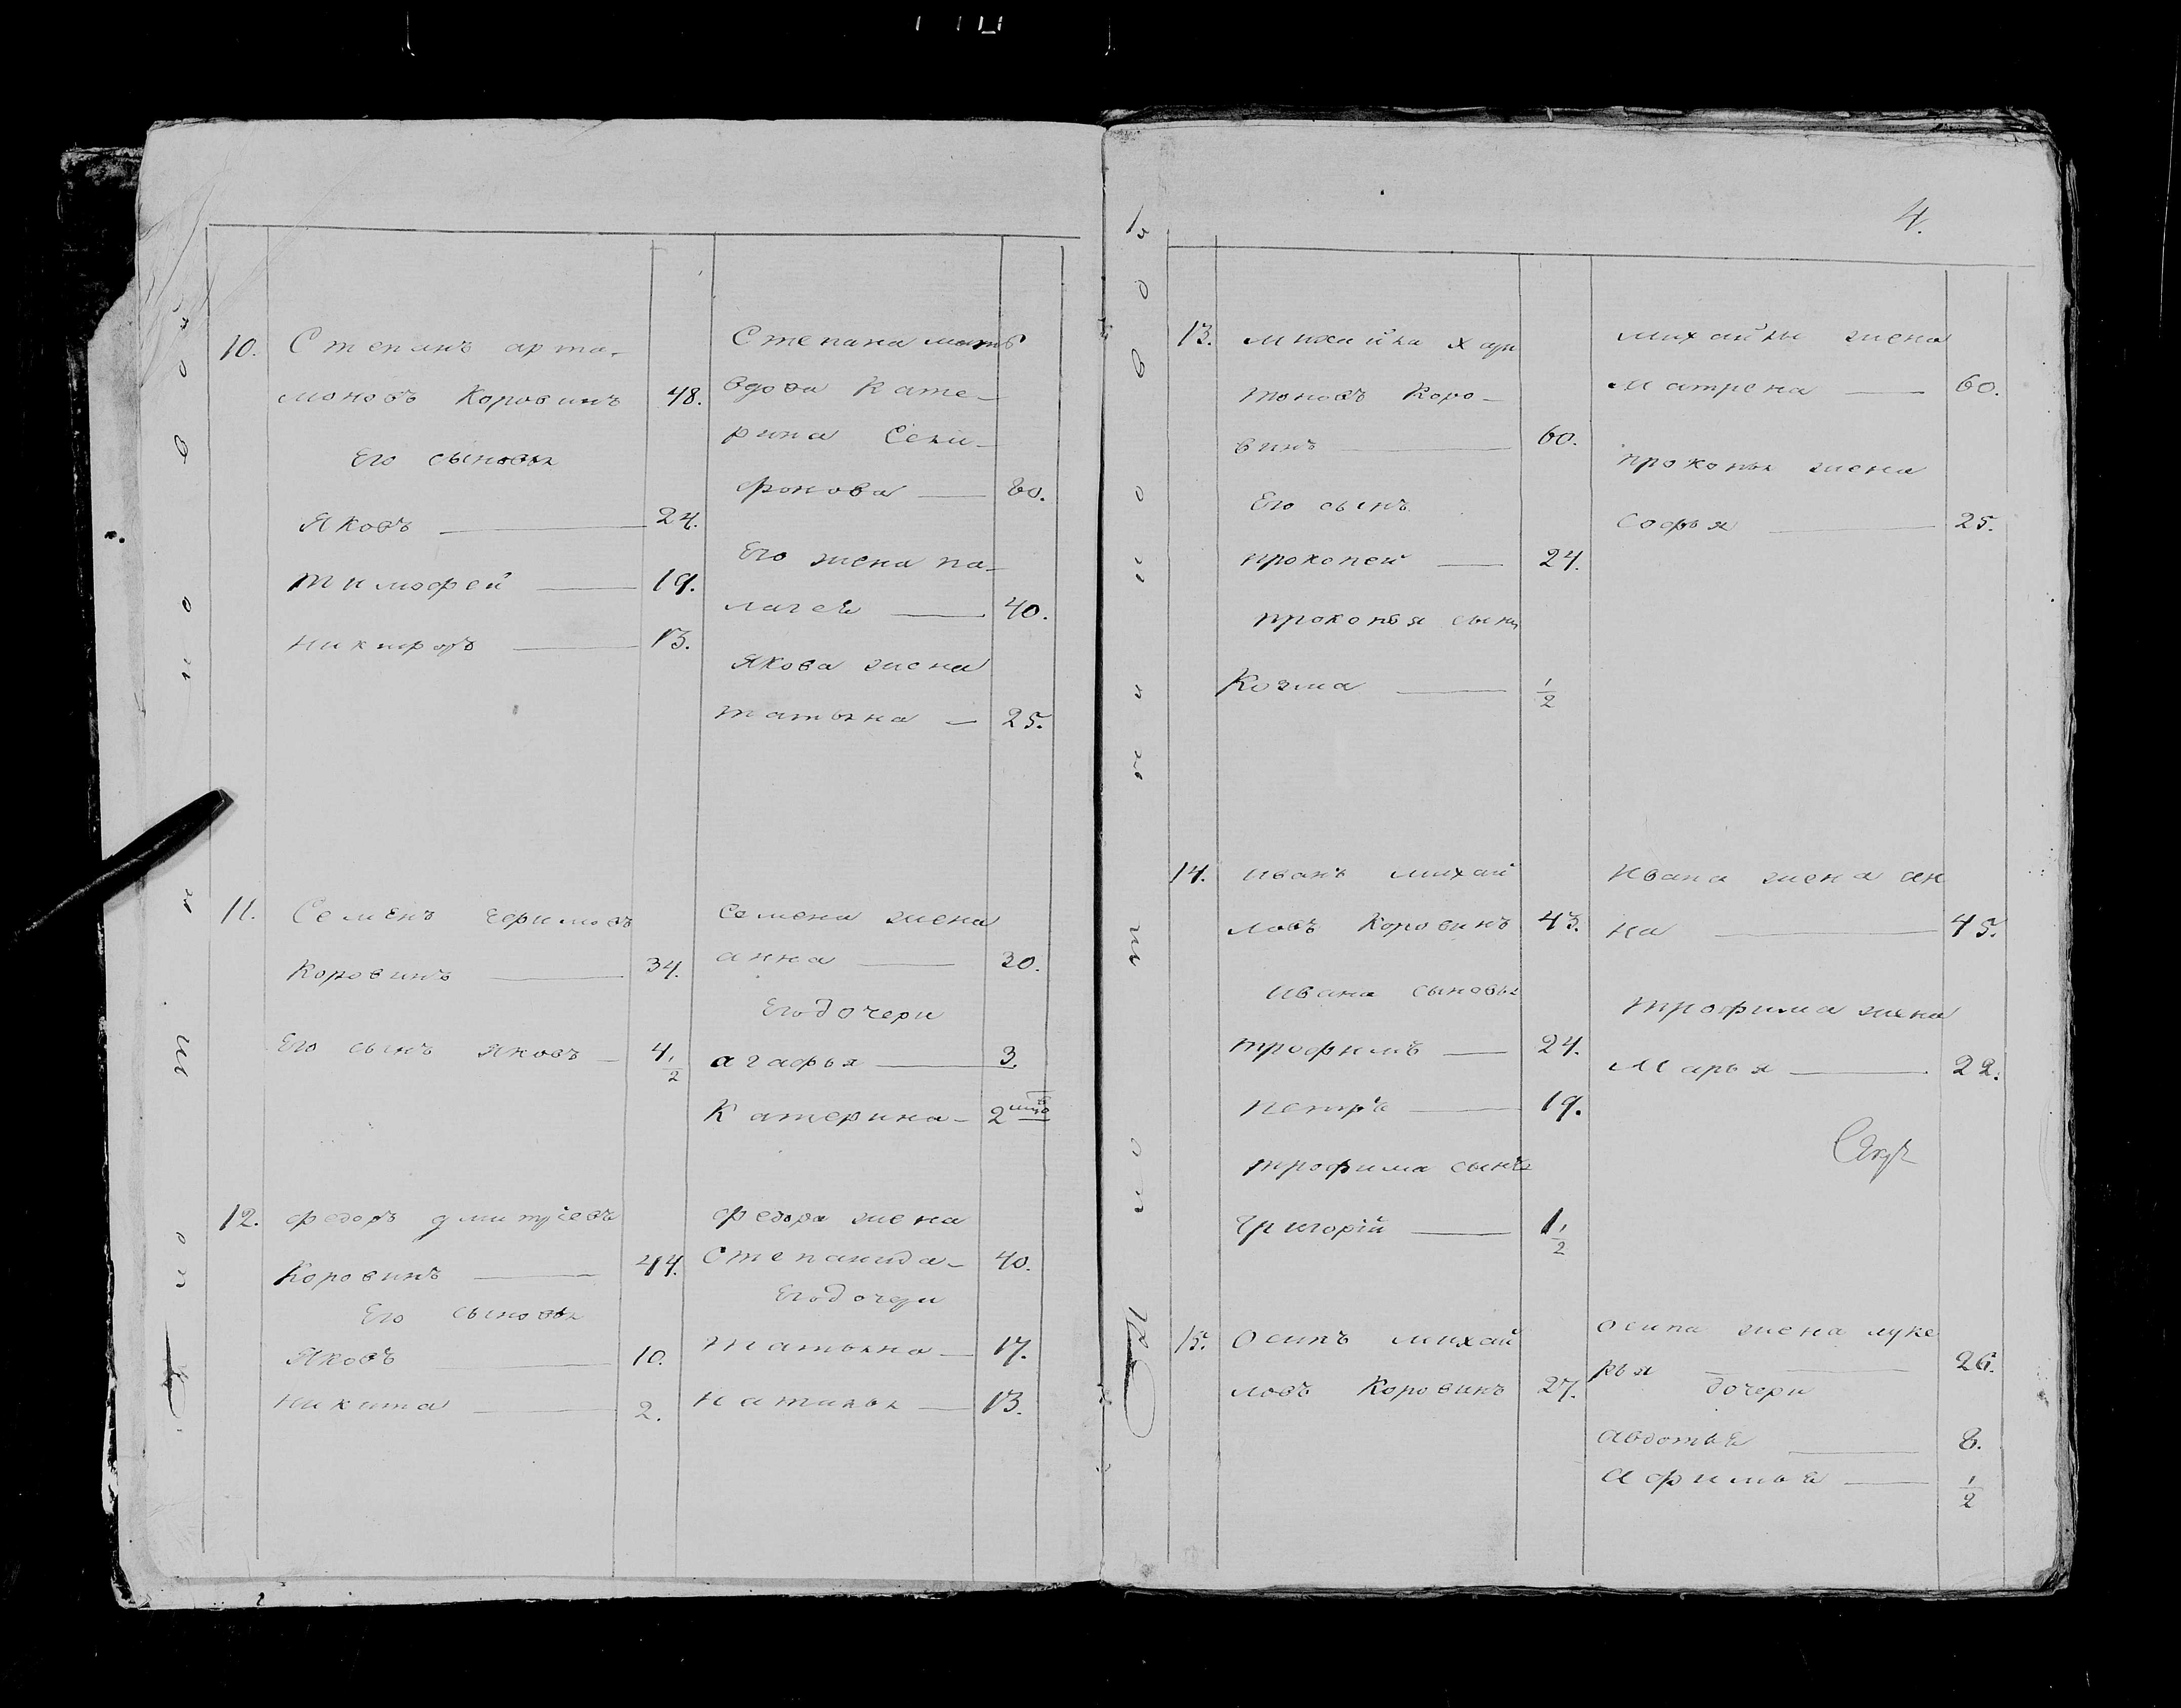 10. Степанъ арта-
моновъ Коровинъ 48.
Его сыновья
Яковъ — 24.
тимофей — 19.
никифоръ — 13.
Степана мать
вдова Кате-
рина Сели-
фонова — 80.
Его жена па-
лагея — 40.
Якова жена
татьяна — 25.
11. Семенъ
Коровинъ — 34.
Его сынъ яковъ — 4 1/2
Семена жена
анна — 30.
Его дочери
агафья — 3.
Катерина — 2
12. федоръ дмитріевъ
Коровинъ — 44.
Его сыновья
Яковъ — 10.
никита — 2.
федора жена
Степанида — 40.
Его дочери
татьяна — 17.
наталья — 13.
4.
13. михайла хари
тоновъ Коро-
винъ — 60.
Его сынъ
прокопей — 24.
прокопья сынъ
Козма — 1/2
михайлы жена
матрена — 60.
прокопья жена
софья — 25.
14. иванъ михай
ловъ Коровинъ 43.
ивана сыновья
трофимъ — 24.
петръ — 19.
трофима сынъ
григорій — 1 1/2
ивана жена ан
на — 45.
трофима жена
Марья — 22.
15. осипъ михай
ловъ Коровинъ 27.
осипа жена луке
рья — 26.
дочери
авдотья — 8.
афимья — 1/2